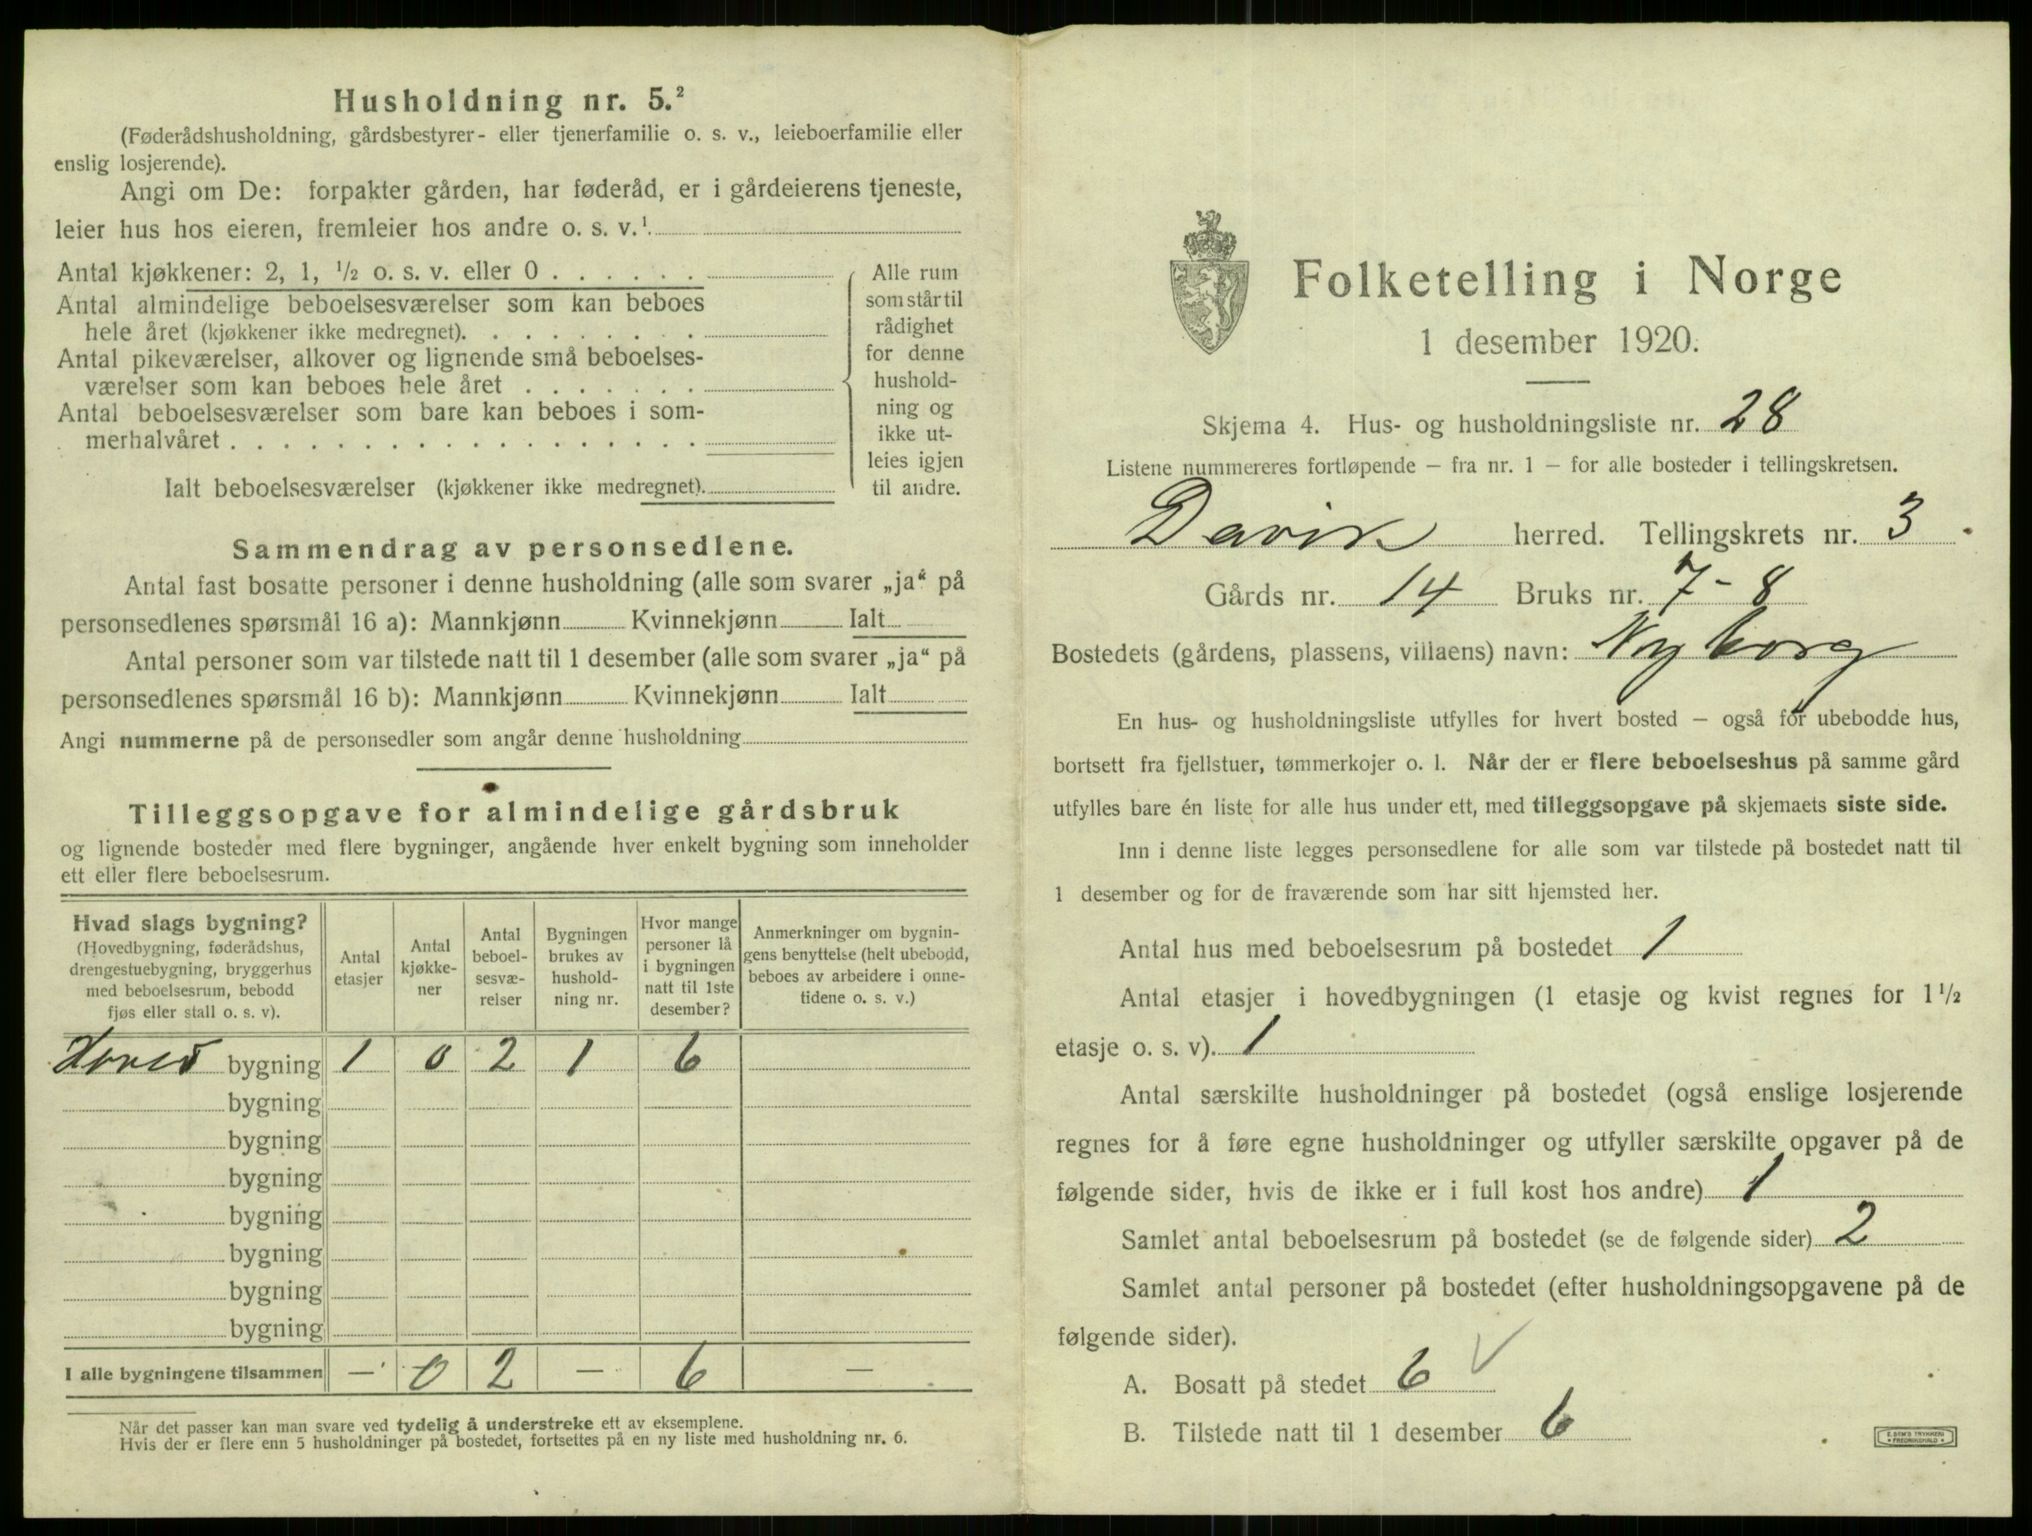 Husholdning nr. 5.²
(Føderådshusholdning, gårdsbestyrer- eller tjenerfamilie o. s. v., leieboerfamilie eller
enslig losjerende).
Angi om De: forpakter gården, har føderåd, er i gårdeierens tjeneste,
leier hus hos eieren, fremleier hos andre o. s. v.¹
Antal kjøkkener: 2, 1, ½ o. s. v. eller 0
Antal almindelige beboelsesværelser som kan beboes
hele året (kjøkkener ikke medregnet).
Antal pikeværelser, alkover og lignende små beboelses-
værelser som kan beboes hele året
Antal beboelsesværelser som bare kan beboes i som-
merhalvåret
Ialt beboelsesværelser (kjøkkener ikke medregnet).
Alle rum
som står til
rådighet
for denne
hushold-
ning og
ikke ut-
leies igjen
til andre.
Sammendrag av personsedlene.
Antal fast bosatte personer i denne husholdning (alle som svarer „ja“ på
personsedlenes spørsmål 16 a): Mannkjønn Kvinnekjønn Ialt
Antal personer som var tilstede natt til 1 desember (alle som svarer „ja“ på
personsedlenes spørsmål 16 b): Mannkjønn Kvinnekjønn Ialt
Angi nummerne på de personsedler som angår denne husholdning
Tilleggsopgave for almindelige gårdsbruk
og lignende bosteder med flere bygninger, angående hver enkelt bygning som inneholder
ett eller flere beboelsesrum.
Hvad slags bygning?
(Hovedbygning, føderådshus,
drengestuebygning, bryggerhus
med beboelsesrum, bebodd
fjøs eller stall o. s. v).
Antal
etasjer
Antal
kjøkke-
ner
Antal
beboel-
sesvæ-
relser
Bygningen
brukes av
hushold-
ning nr.
Hvor mange
personer lå
i bygningen
natt til 1ste
desember?
Anmerkninger om bygnin-
gens benyttelse (helt ubebodd,
beboes av arbeidere i onne-
tidene o. s. v.)
Hoved bygning 1 0 2 1 6
bygning
bygning
bygning
bygning
bygning
bygning
bygning
I alle bygningene tilsammen — 0 2 — 6 —
Når det passer kan man svare ved tydelig å understreke ett av eksemplene.
Hvis der er flere enn 5 husholdninger på bostedet, fortsettes på en ny liste med husholdning nr. 6.
Folketelling i Norge
1 desember 1920.
Skjema 4. Hus- og husholdningsliste nr. 28
Listene nummereres fortløpende – fra nr. 1 – for alle bosteder i tellingskretsen.
Davik herred. Tellingskrets nr. 3
Gårds nr. 14 Bruks nr. 7-8
Bostedets (gårdens, plassens, villaens) navn: Nyborg
En hus- og husholdningsliste utfylles for hvert bosted – også for ubebodde hus,
bortsett fra fjellstuer, tømmerkojer o. l. Når der er flere beboelseshus på samme gård
utfylles bare én liste for alle hus under ett, med tilleggsopgave på skjemaets siste side.
Inn i denne liste legges personsedlene for alle som var tilstede på bostedet natt til
1 desember og for de fraværende som har sitt hjemsted her.
Antal hus med beboelsesrum på bostedet 1
Antal etasjer i hovedbygningen (1 etasje og kvist regnes for 1½
etasje o. s. v). 1
Antal særskilte husholdninger på bostedet (også enslige losjerende
regnes for å føre egne husholdninger og utfyller særskilte opgaver på de
følgende sider, hvis de ikke er i full kost hos andre) 1
Samlet antal beboelsesrum på bostedet (se de følgende sider) 2
Samlet antal personer på bostedet (efter husholdningsopgavene på de
følgende sider).
A. Bosatt på stedet 6
B. Tilstede natt til 1 desember 6
E. SEM'S TRYKKERI
FREDRIKSHALD